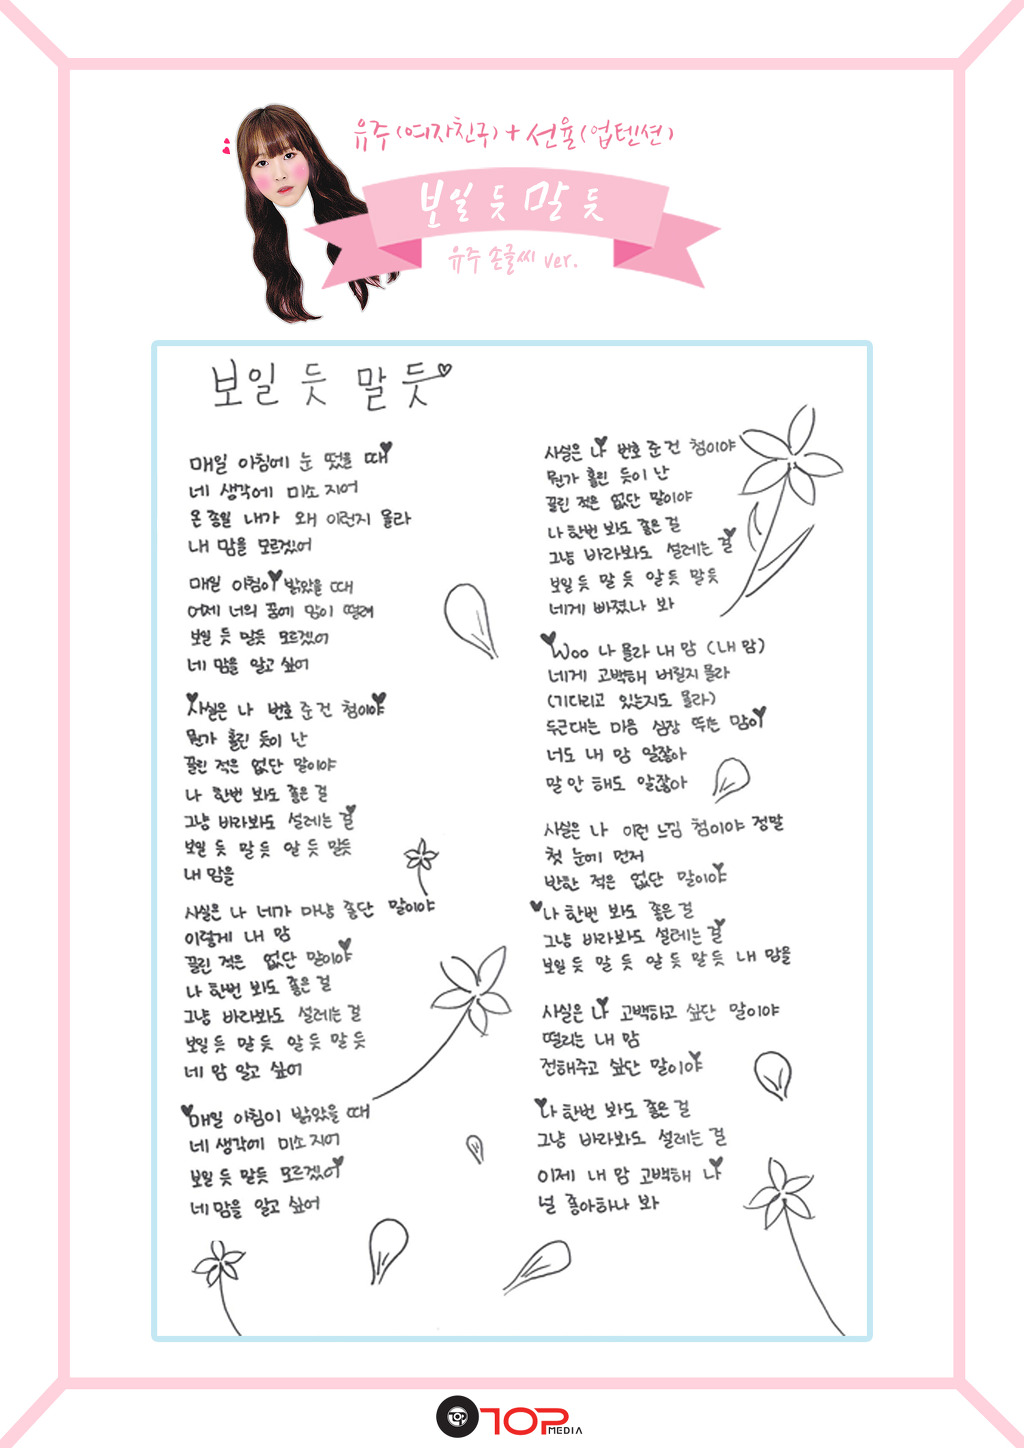 유주(여자친구)+선율(업텐션)
보일 듯 말 듯
유주 손글씨 ver.
보일 듯 말 듯
매일 아침에 눈 떴을 때
네 생각에 미소 지어
온종일 내가 왜 이런지 몰라
내 맘을 모르겠어
매일 아침이 밝았을 때
어제 너의 꿈에 맘이 떨려
보일 듯 말듯 모르겠어
네 맘을 알고 싶어
사실은 나 번호 준 건 첨이야
뭔가 홀린 듯이 난
끌린 적은 없단 말이야
나 한번 봐도 좋은 걸
그냥 바라봐도 설레는 걸
보일 듯 말 듯 알 듯 말듯
내 맘을
사실은 나 네가 마냥 좋단 말이야
이렇게 내 맘
끌린 적은 없단 말이야
나 한번 봐도 좋은 걸
그냥 바라봐도 설레는 걸
보일 듯 말 듯 알 듯 말 듯
네 맘 알고 싶어
매일 아침이 밝았을 때
네 생각에 미소 지어
보일 듯 말듯 모르겠어
네 맘을 알고 싶어
사실은 나 번호 준 건 첨이야
뭔가 홀린 듯이 난
끌린 적은 없단 말이야
나 한번 봐도 좋은 걸
그냥 바라봐도 설레는 걸
보일 듯 말 듯 알 듯 말듯
네게 빠졌나 봐
Woo 나 몰라 내 맘 (내 맘)
네게 고백해 버릴지 몰라
(기다리고 있는지도 몰라)
두근대는 마음 심장 뛰는 맘이
너도 내 맘 알잖아
말 안 해도 알잖아
사실은 나 이런 느낌 첨이야 정말
첫 눈에 먼저
반한 적은 없단 말이야
나 한번 봐도 좋은 걸
그냥 바라봐도 설레는 걸
보일 듯 말 듯 알 듯 말 듯 내 맘을
사실은 나 고백하고 싶단 말이야
떨리는 내 맘
전해주고 싶단 말이야
나 한번 봐도 좋은 걸
그냥 바라봐도 설레는 걸
이제 내 맘 고백해 나
널 좋아하나 봐
TOP
TOP MEDIA